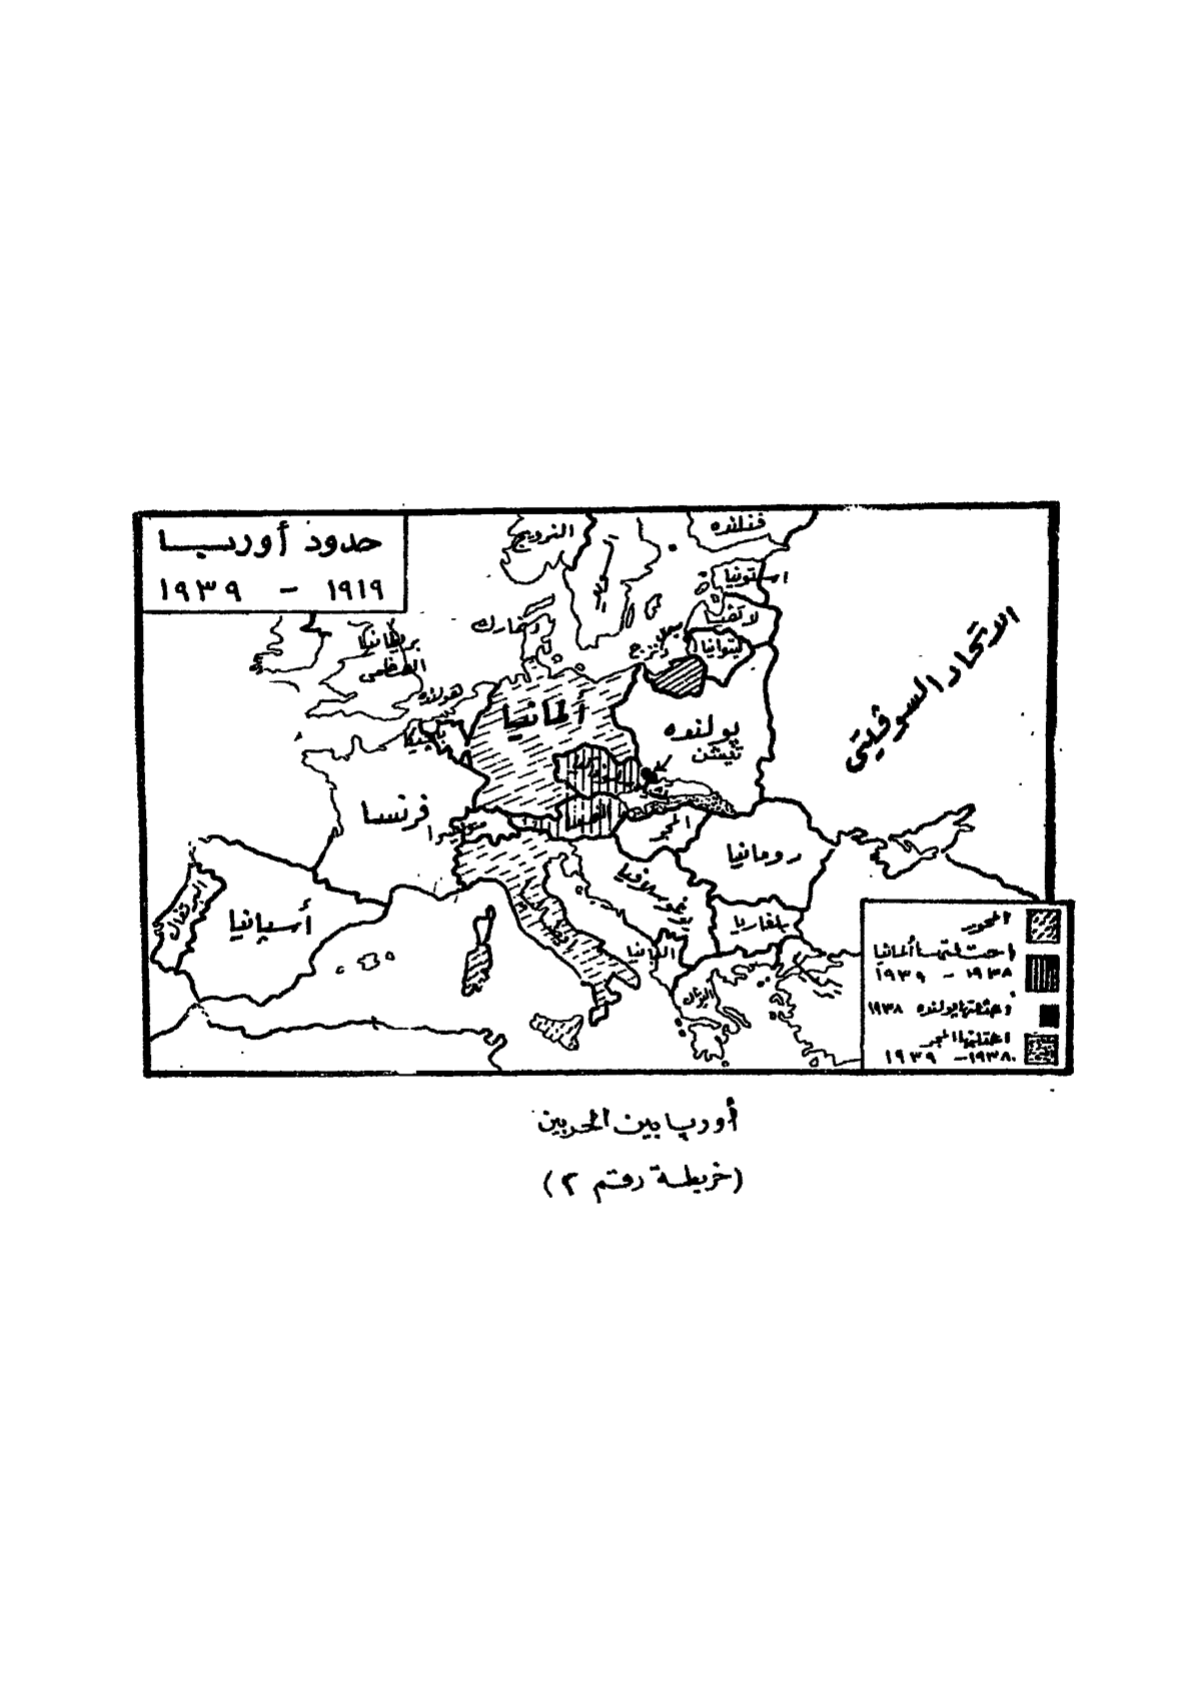 حدود أوربـــا
١٩١٩ - ١٩٣٩
النرويج
فنلنده
استونيا
لاتفيا
ليتوانيا
دنمارك
بريطانيا
العظمى
هولنده
بلجيكا
ألمانيا
بولنده
تيشن
الاتحاد السوڤيتى
فرنسا
سويسرا
النمسا
المجر
رومانيا
يوغوسلافيا
بلغاريا
ألبانيا
اليونان
إيطاليا
أسبانيا
البرتغال
المحور
احتلتها ألمانيا
١٩٣٨ - ١٩٣٩
احتلتها بولنده ١٩٣٨
احتلتها المجر
١٩٣٨ - ١٩٣٩
أوربا بين الحربين
(خريطة رقم ٢)